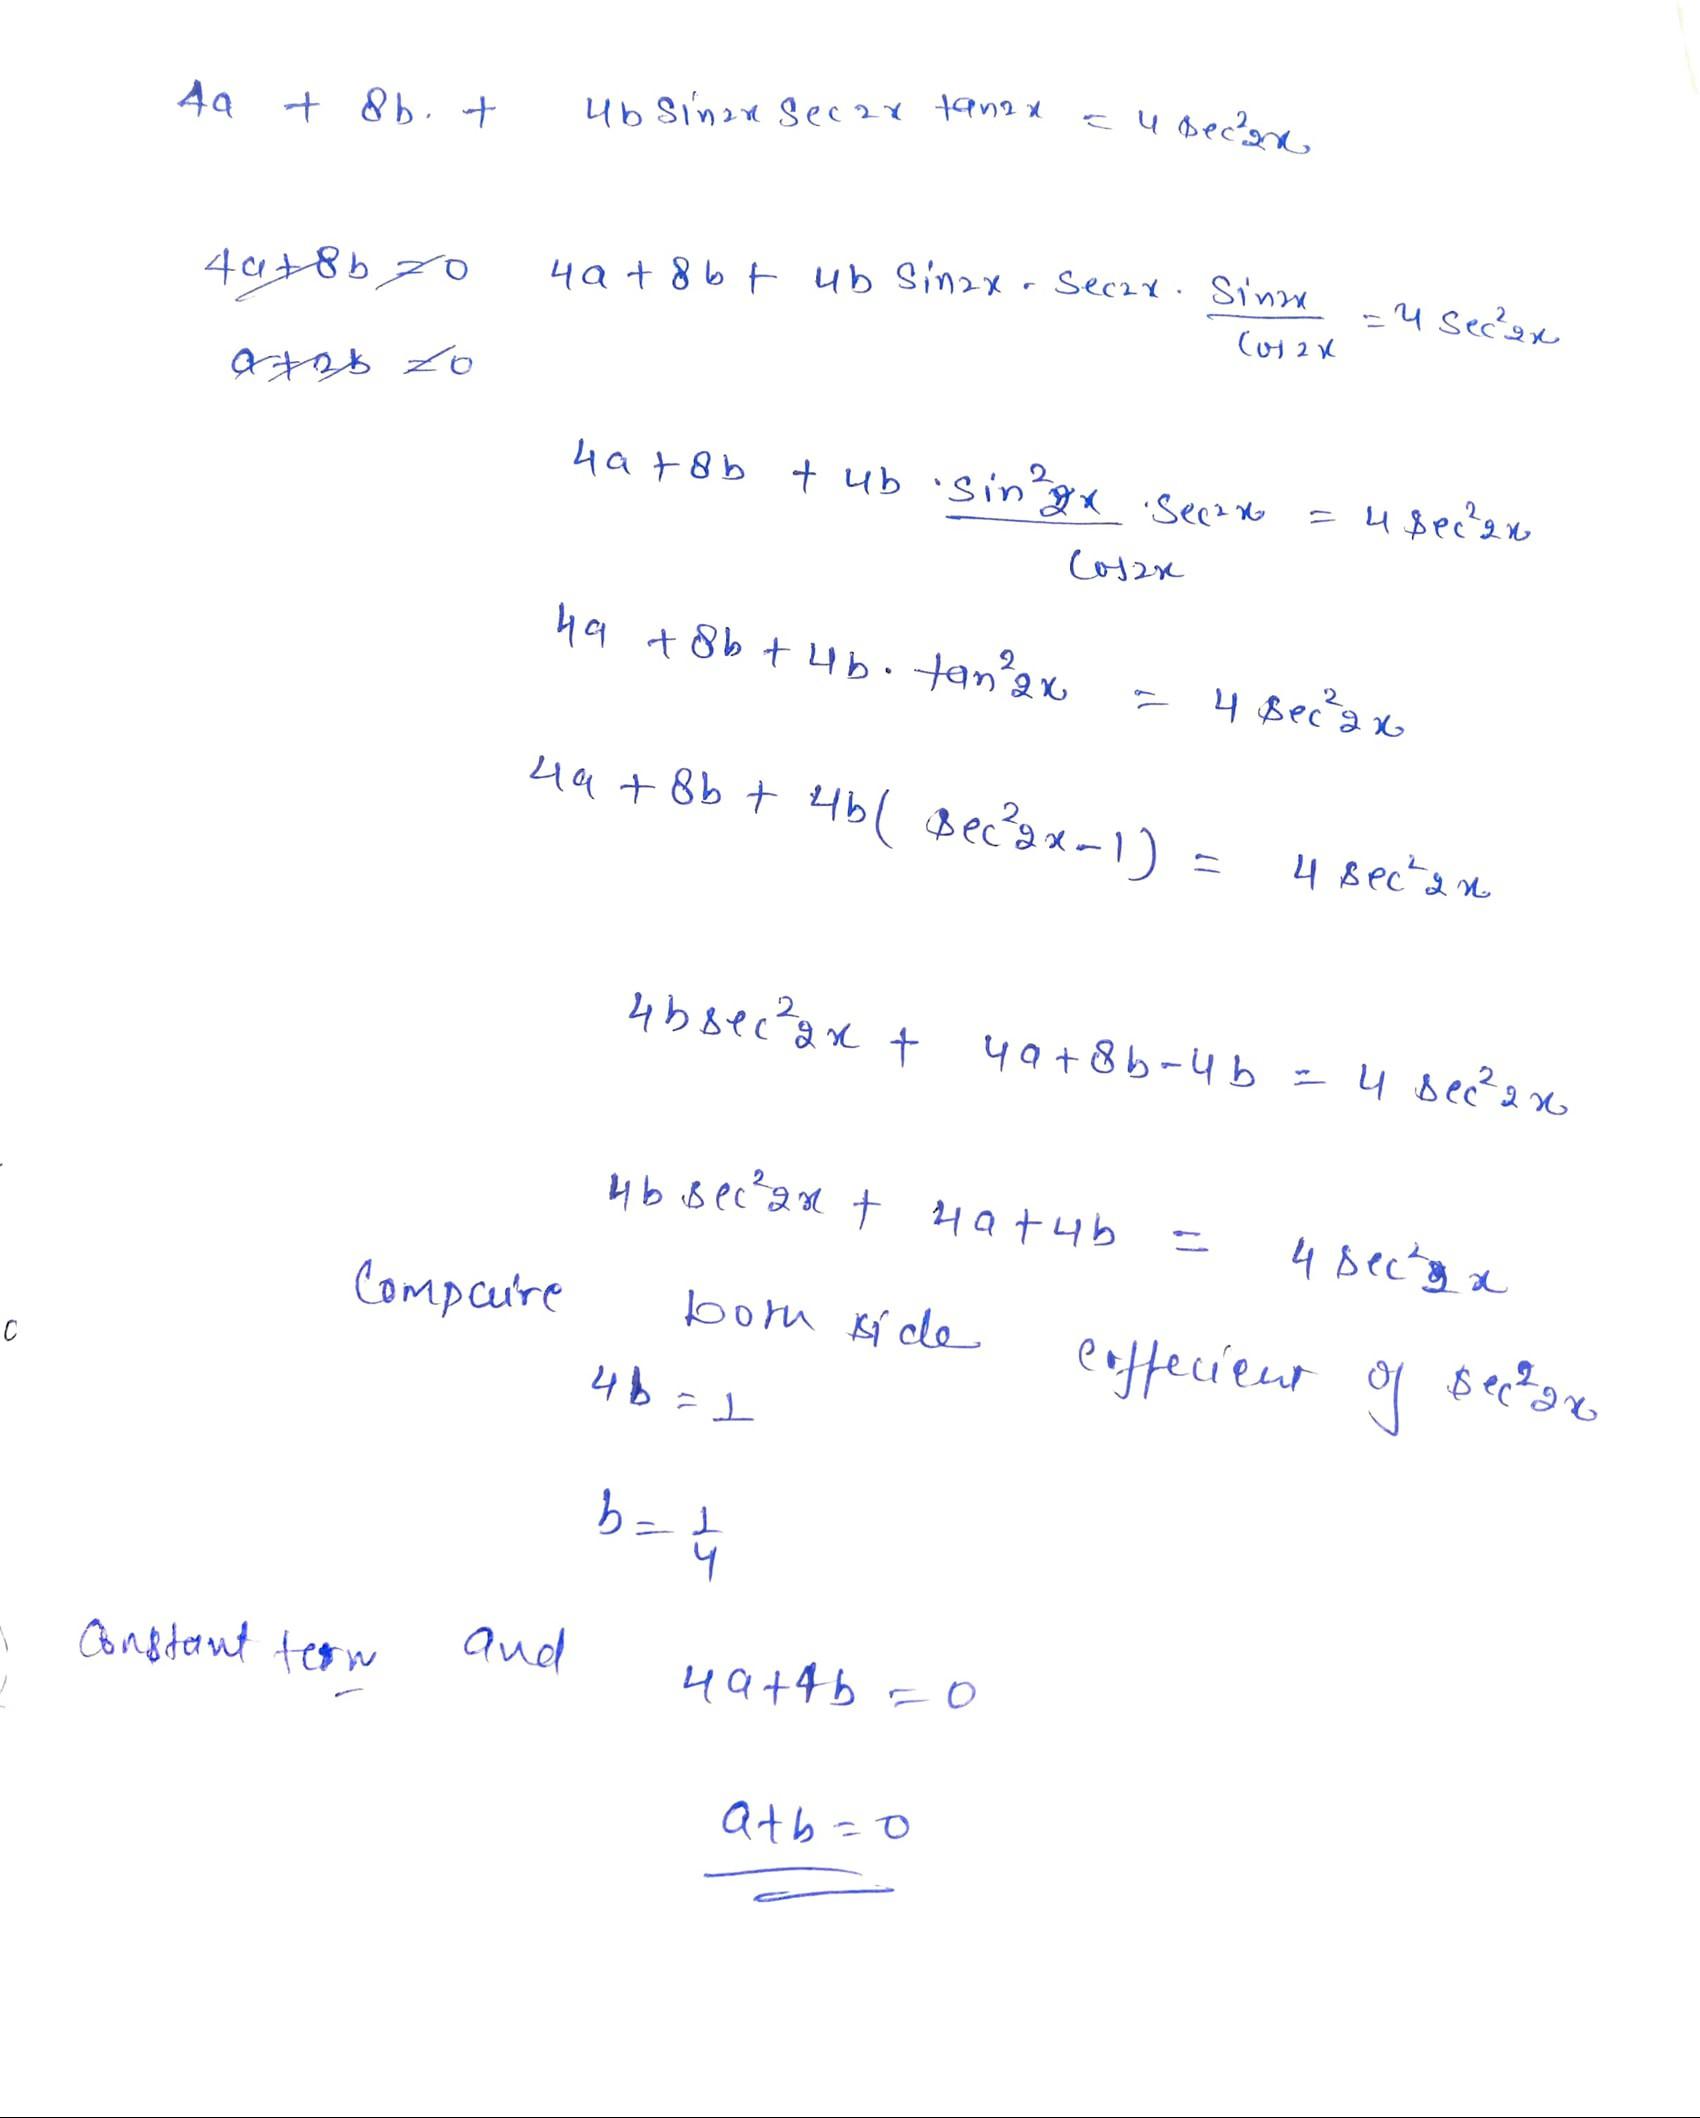 4a + 8b. + 4b Sin2x Sec2x tan2x = 4 sec²2x
4a+8b=0 4a + 8b + 4b Sin2x . Sec2x . Sin2x/Cos2x = 4 Sec²2x
a+2b=0
4a + 8b + 4b . sin²2x/Cos2x . Sec2x = 4 sec²2x
4a + 8b + 4b . tan²2x = 4 sec²2x
4a + 8b + 4b( sec²2x-1) = 4 sec²2x
4b sec²2x + 4a+8b-4b = 4 sec²2x
4b sec²2x + 4a+4b = 4 sec²2x
Compaire both side coffecient of sec²2x
4b = 1
b = 1/4
Constant term and 4a+4b = 0
a+b=0